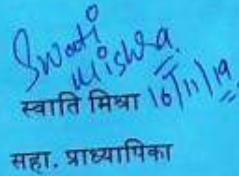 Swati
Mishra
16/11/19
स्वाति मिश्रा
सहा. प्राध्यापिका